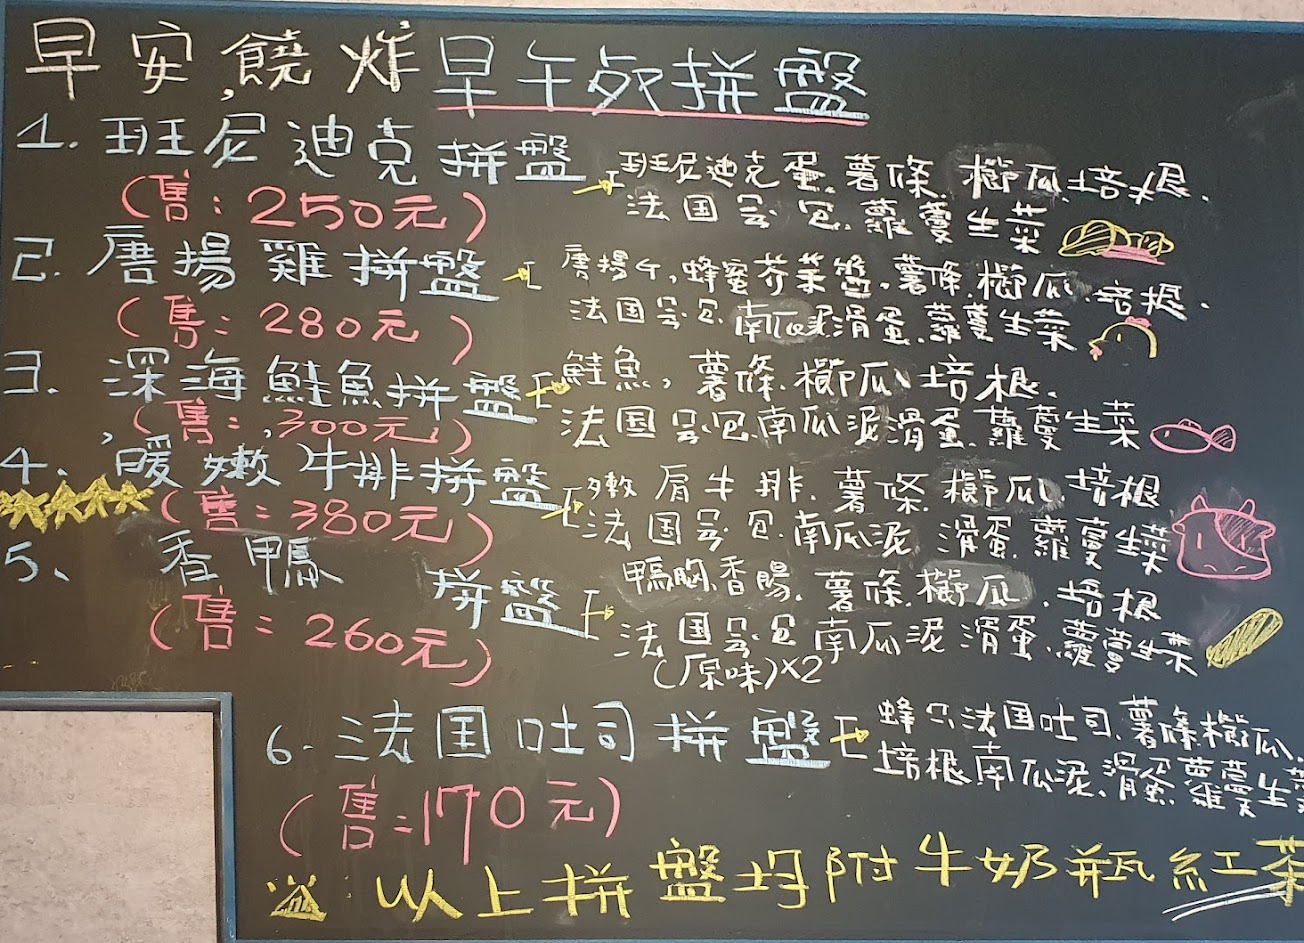 早安,饒炸早午餐拼盤
1.班尼迪克拼盤
(售:250元)
班尼迪克蛋.薯條.櫛瓜.培根.
法国号.包.蘿蔓生菜
2.唐揚雞拼盤
(售:280元)
唐揚ㄐ,蜂蜜芥茉醬.薯條.櫛瓜.培根.
法国号.包.南瓜泥滑蛋.蘿蔓生菜
3.深海鮭魚拼盤
(售:300元)
鮭魚,薯條.櫛瓜、培根.
法国号.包.南瓜泥滑蛋.蘿蔓生菜
4、暖嫩牛排拼盤
(售:380元)
嫩肩牛排.薯條.櫛瓜.培根
法国号.包.南瓜泥 滑蛋.蘿蔓生菜
5、香鴨 拼盤
(售:260元)
鴨胸.香腸.薯條.櫛瓜.培根
法国号.包.南瓜泥 滑蛋.蘿蔓生菜
(原味)x2
6.法国吐司拼盤
(售:170元)
蜂ㄇ.法国吐司.薯條.櫛瓜.
培根.南瓜泥.滑蛋.蘿蔓生菜
以上拼盤均附牛奶瓶紅茶